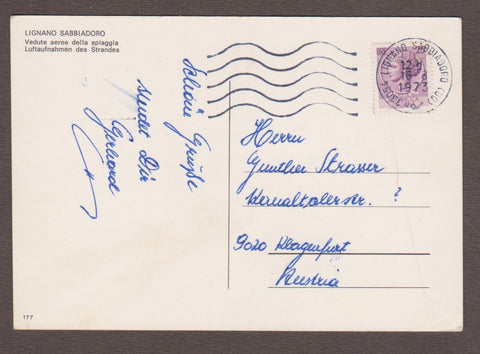 LIGNANO SABBIADORO
Vedute aeree della spiaggia
Luftaufnahmen des Strandes
Schöne Grüße
sendet Dir
Gerhard
LIGNANO SABBIADORO (UD)
1973
Herrn
Gunther Strasser
Kanaltalerstr. ?
9020 Klagenfurt
Austria
177